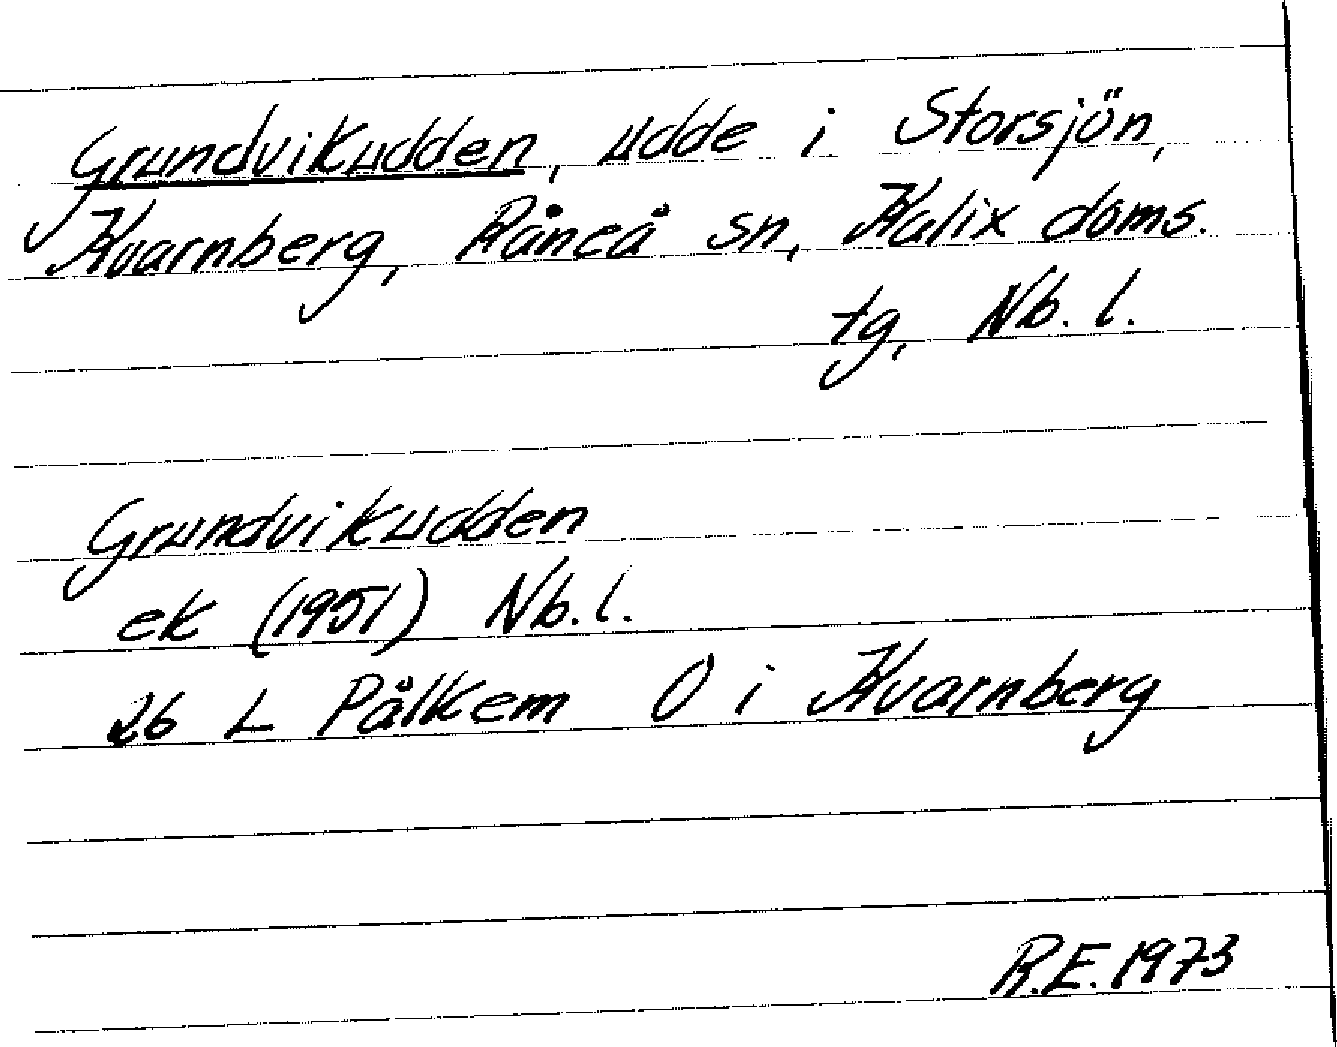 Grundvikudden, udde i Storsjön,
Kvarnberg, Råneå sn, Kalix doms.
tg, Nb. l.
Grundvikudden
ek (1951) Nb. l.
26 L Pålkem O i Kvarnberg
R.E. 1973